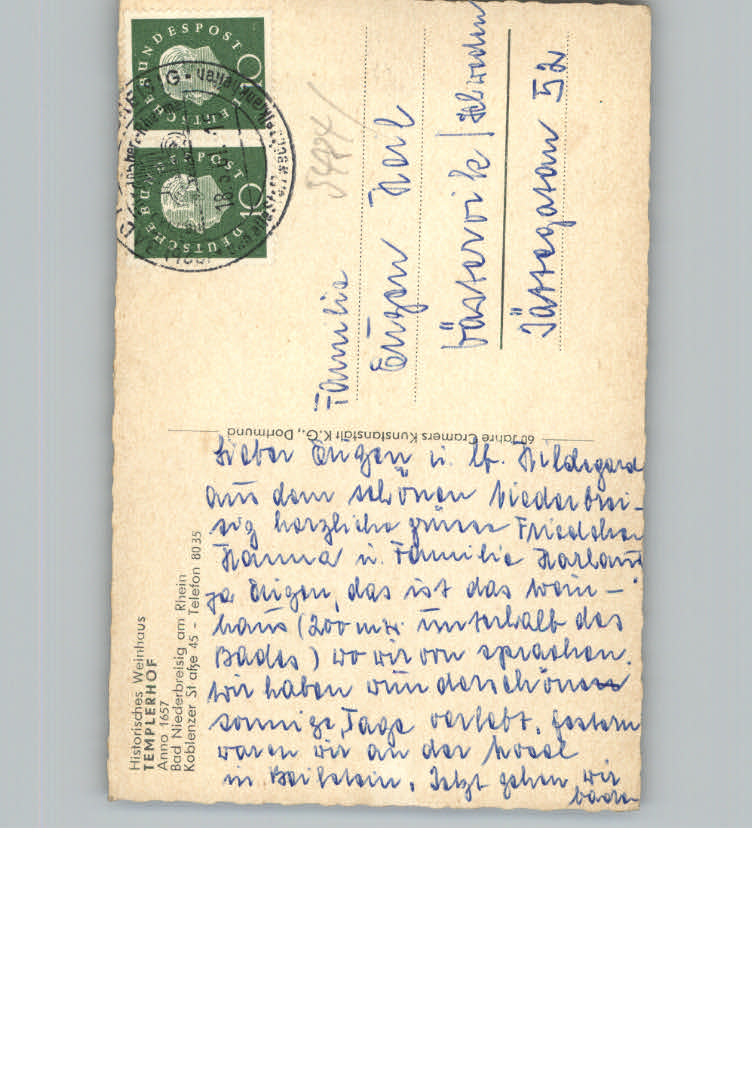 Historisches Weinhaus
TEMPLERHOF
Anno 1657
Bad Niederbreisig am Rhein
Koblenzer St aße 45 - Telefon 8035
Lieber Eugen u. lb. Hildegard
aus dem schönen Niederbrei-
sig herzliche Grüsse Friedchen
Hanna u. Familie
ja Eugen, das ist das Wein-
haus (200 mtr. unterhalb des
Bades) wo wir von sprachen.
Wir haben wunderschöne
sonnige Tage verlebt. Gestern
waren wir an der Mosel
in Beilstein. Jetzt gehen wir
baden
60 Jahre Cramers Kunstanstalt K.G., Dortmund
DEUTSCHE BUNDESPOST
DEUTSCHE BUNDESPOST
Familie
Eugen Herl
Västervik / Schweden
52